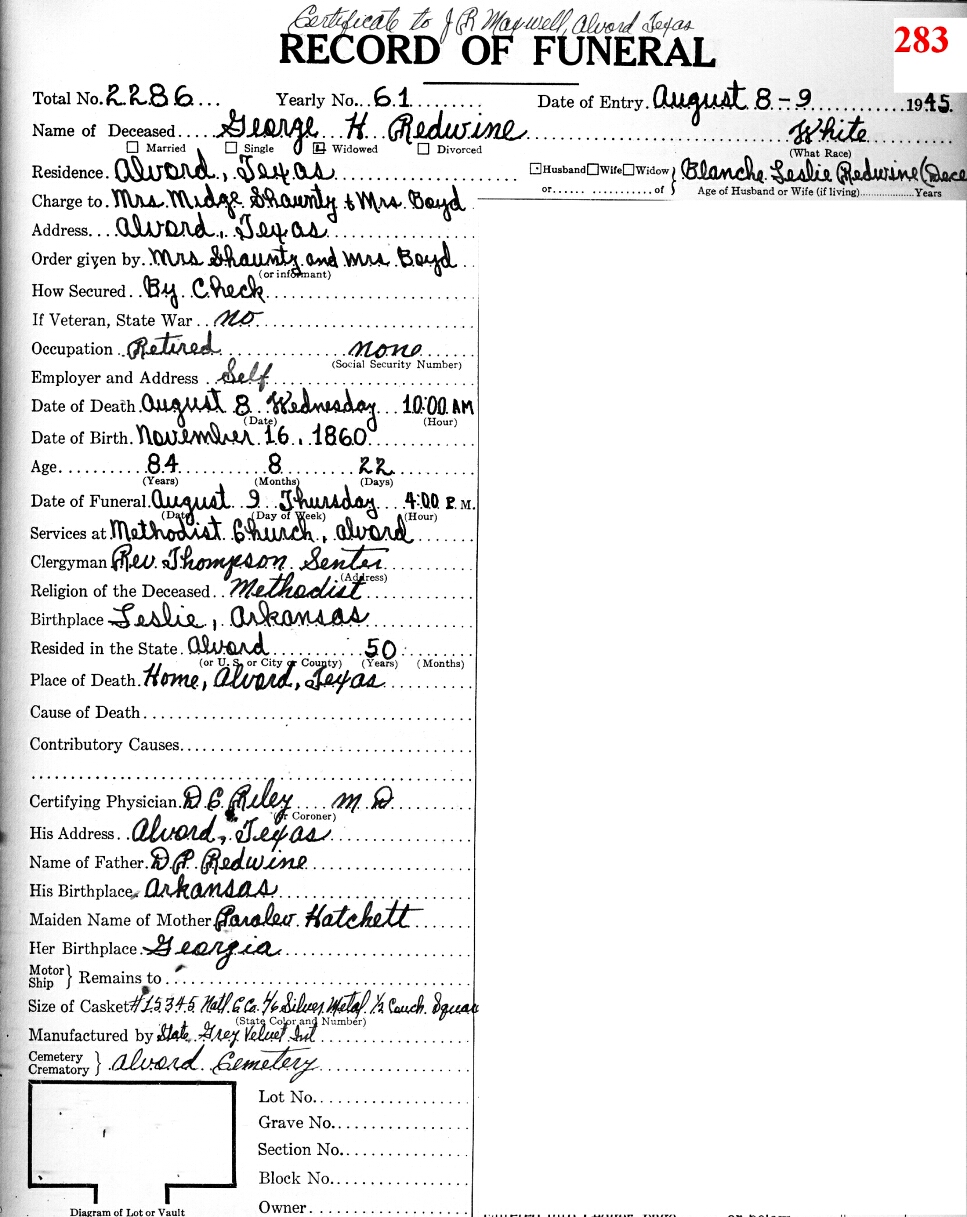 Certificate to J R Maxwell, Alvord Texas
RECORD OF FUNERAL
283
Total No. 2286 Yearly No. 61 Date of Entry. August 8-9 1945
Name of Deceased George H. Redwine White
☐ Married ☐ Single ☒ Widowed ☐ Divorced (What Race)
Residence. Alvord, Texas ☐ Husband ☐ Wife ☐ Widow } Blanche Leslie Redwine (Dece
or............of Age of Husband or Wife (if living)................Years
Charge to. Mrs. Midge Shaunty & Mrs. Boyd
Address. Alvord, Texas
Order given by. Mrs Shaunty and Mrs. Boyd
(or informant)
How Secured. By Check
If Veteran, State War. no
Occupation. Retired none
(Social Security Number)
Employer and Address. Self
Date of Death. August 8 Wednesday 10:00 AM
(Date) (Hour)
Date of Birth. November 16, 1860
Age. 84 8 22
(Years) (Months) (Days)
Date of Funeral. August 9 Thursday 4:00 P.M.
(Date) (Day of Week) (Hour)
Services at Methodist Church, Alvord
Clergyman Rev. Thompson Senter
(Address)
Religion of the Deceased. Methodist
Birthplace Leslie, Arkansas
Resided in the State. Alvord 50
(or U. S. or City or County) (Years) (Months)
Place of Death. Home, Alvord, Texas
Cause of Death
Contributory Causes
Certifying Physician. D C Riley M D
(or Coroner)
His Address. Alvord, Texas
Name of Father. D P Redwine
His Birthplace. Arkansas
Maiden Name of Mother Hatchett
Her Birthplace. Georgia
Motor
Ship } Remains to
Size of Casket #15345 Natl. C Co. 4/6 Silver Metal ½ Couch Squar
(State Color and Number)
Manufactured by State Grey Velvet Int
Cemetery
Crematory } Alvord Cemetery
Lot No.
Grave No.
Section No.
Block No.
Owner
Diagram of Lot or Vault